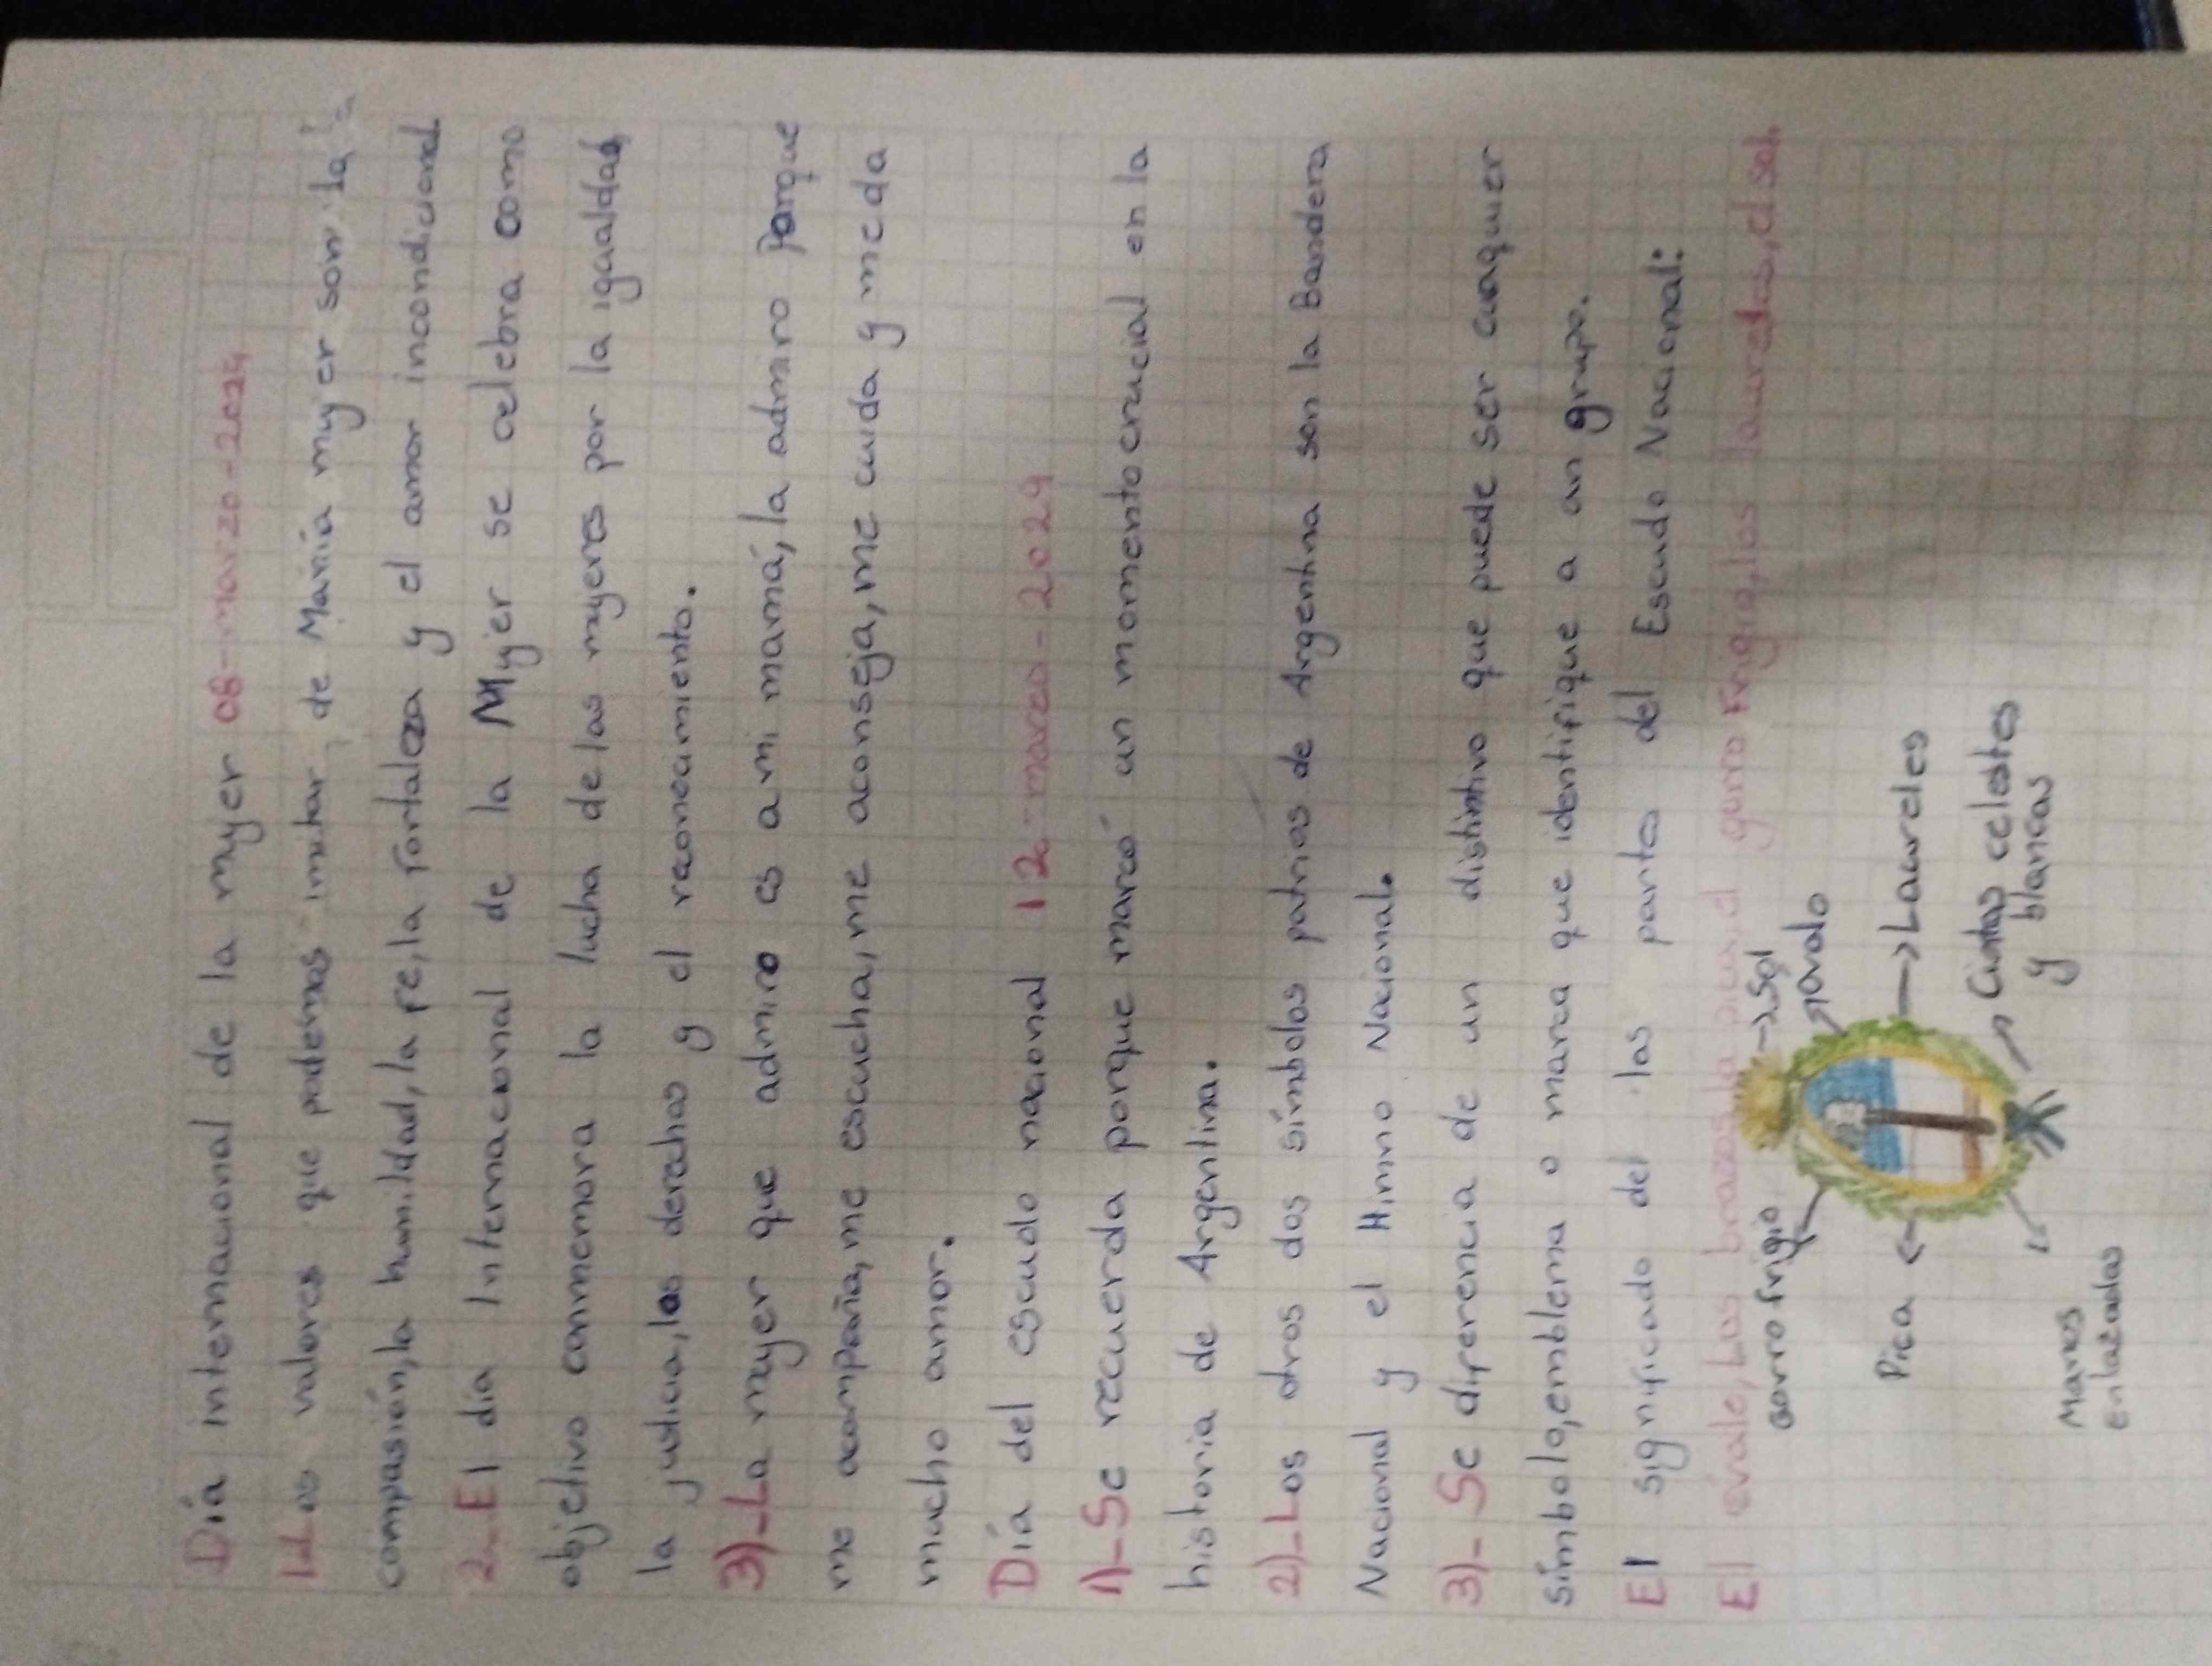 Día internacional de la mujer 08-marzo-2024
1-Los valores que podemos imitar de María mujer son: la
compasión, la humildad, la fe, la fortaleza y el amor incondicional
2-El día Internacional de la Mujer se celebra como
objetivo conmemora la lucha de las mujeres por la igualdad,
la justicia, los derechos y el reconocimiento.
3)-La mujer que admiro es a mi mamá, la admiro porque
me acompaña, me escucha, me aconseja, me cuida y me da
mucho amor.
Día del escudo nacional 12-marzo-2024
1)-Se recuerda porque marcó un momento crucial en la
historia de Argentina.
2)-Los otros dos símbolos patrios de Argentina son la Bandera
Nacional y el Himno Nacional.
3)-Se diferencia de un distintivo que puede ser cuaquier
símbolo, emblema o marca que identifique a un grupo.
El significado del las partes del Escudo Nacional:
El óvalo, Los brazos, la pica, el gorro Frigio, los laureles, el sol.
Gorro Frigio
Sol
óvalo
Pica
Laureles
Manos
enlazadas
Cintas celestes
y blancas